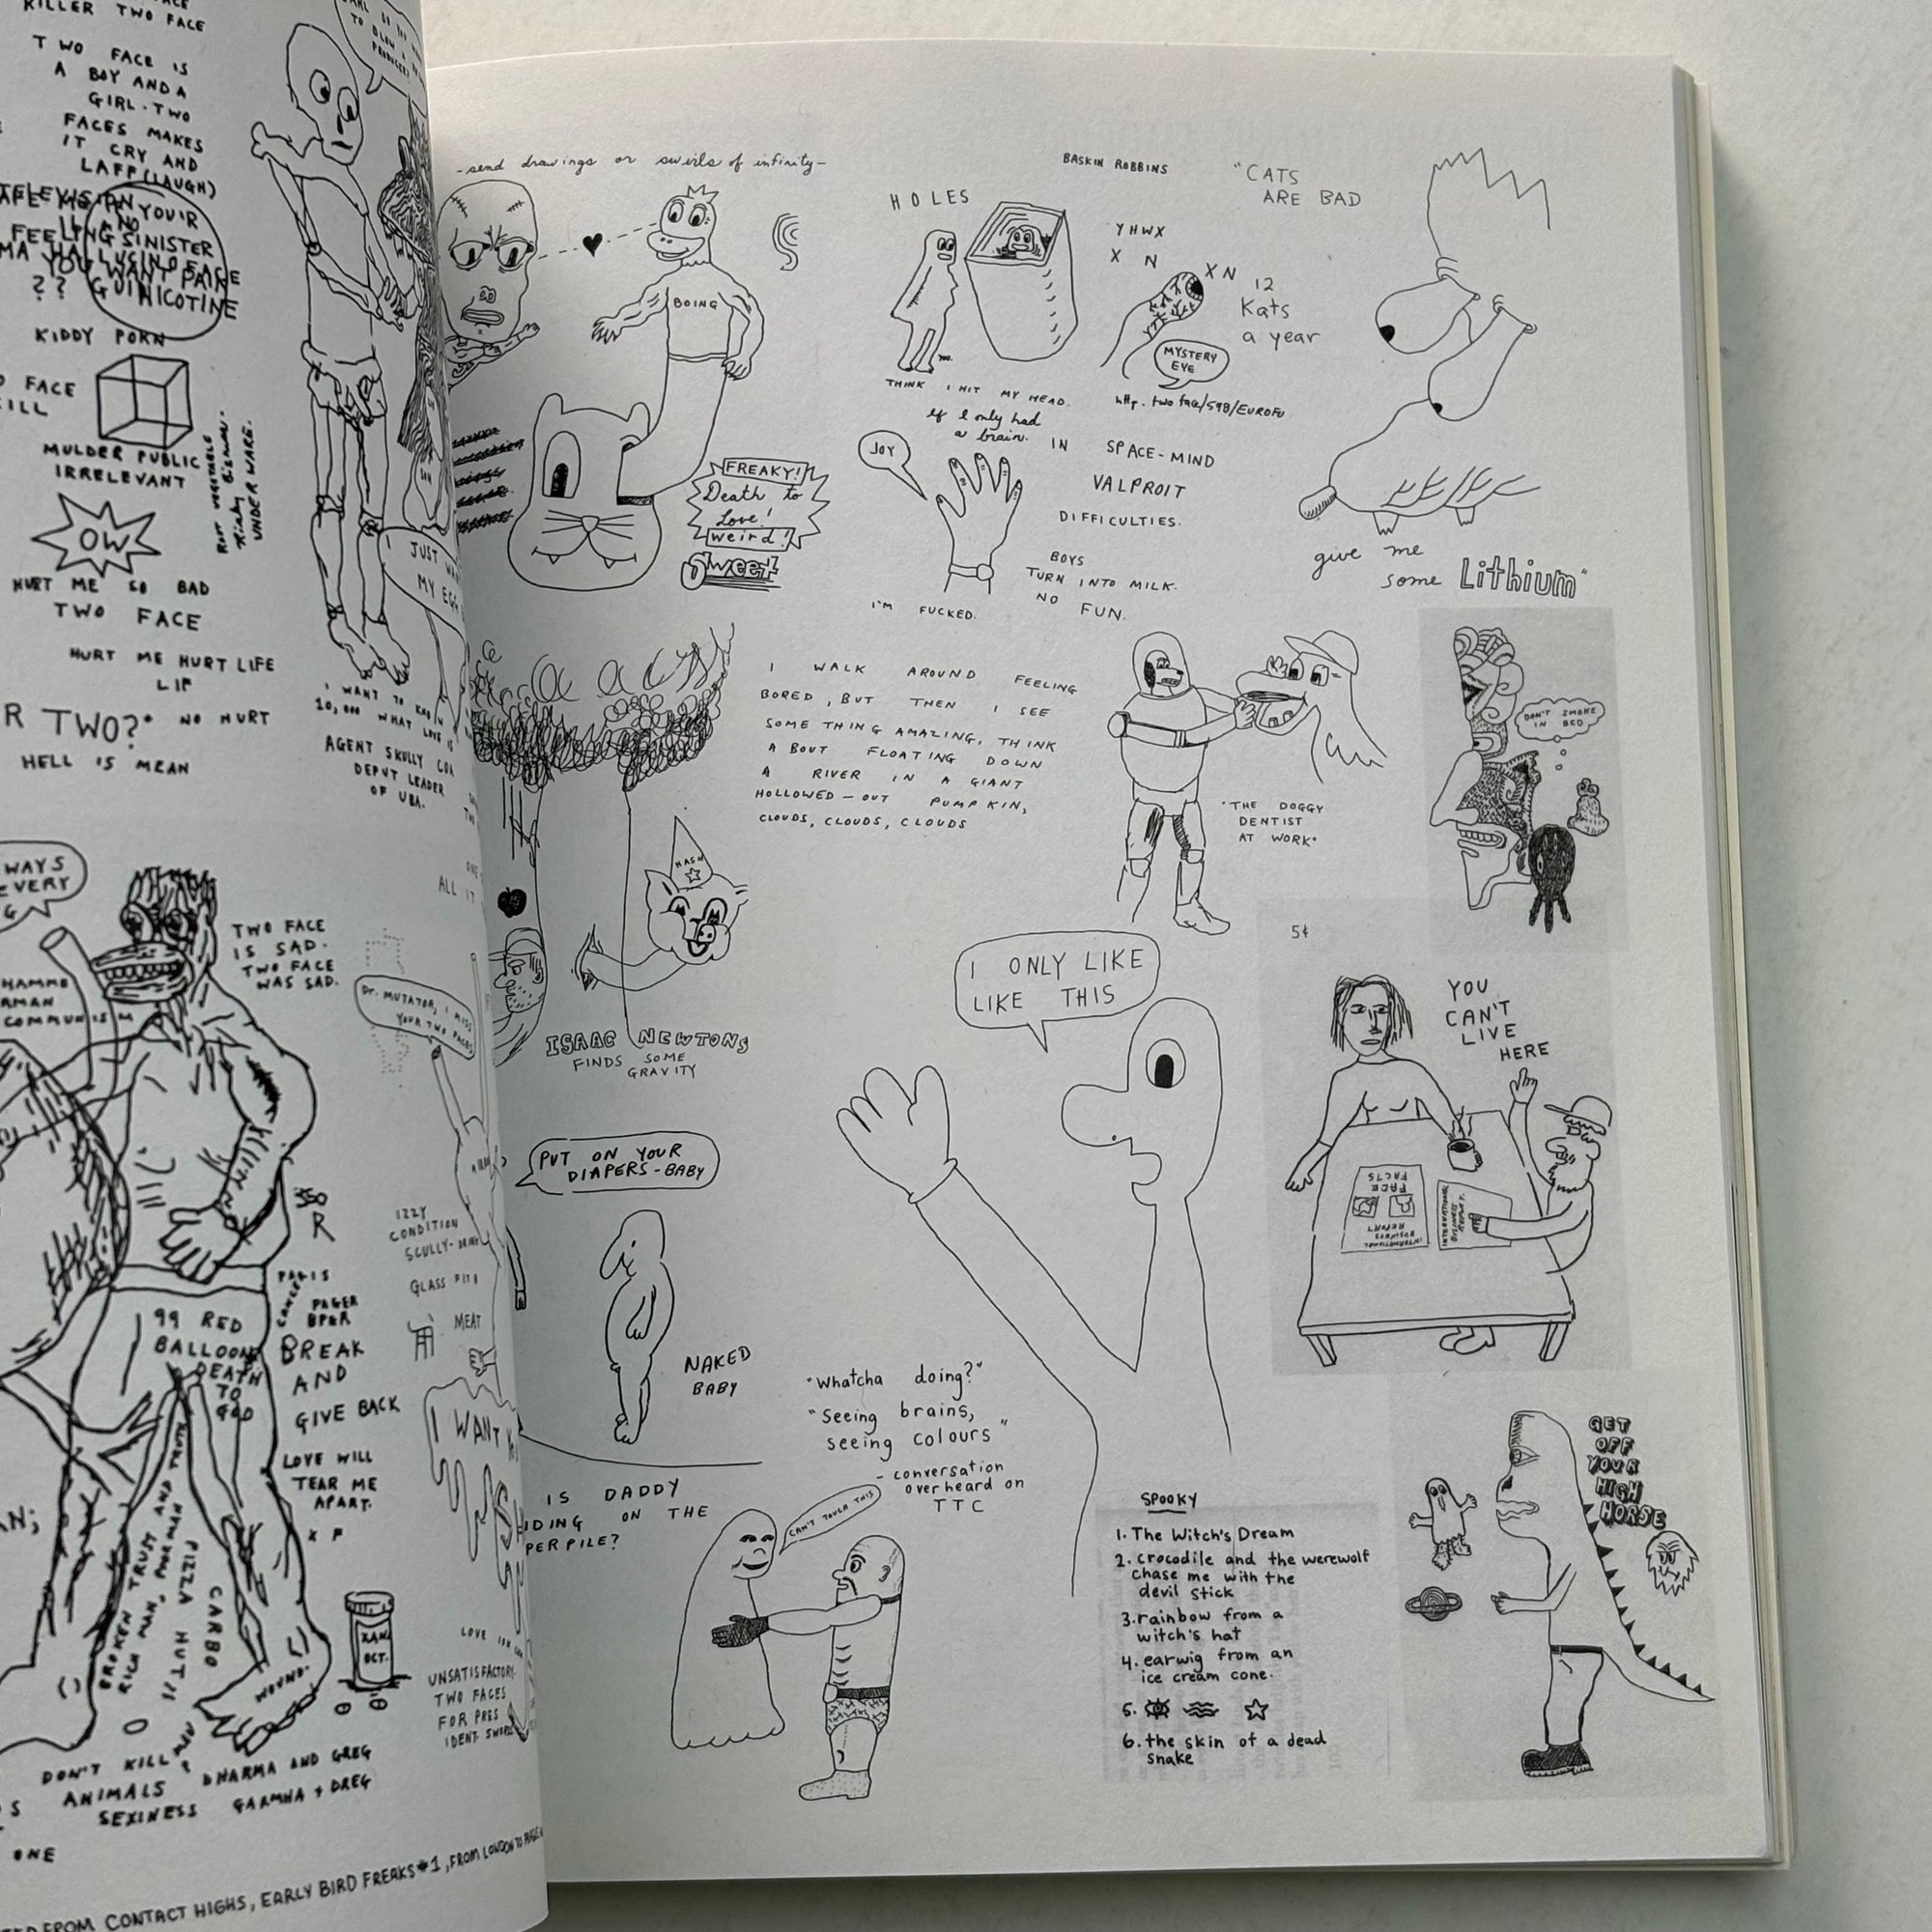 KILLER TWO FACE
TWO FACE IS
A BOY AND A
GIRL. TWO
FACES MAKES
IT CRY AND
LAFF (LAUGH)
FEELING SINISTER
??
NICOTINE
KIDDY PORN
FACE
MULDER PUBLIC
IRRELEVANT
UNDERWARE.
OW
HURT ME SO BAD
TWO FACE
HURT ME HURT LIFE
LIF
R TWO?" NO HURT
HELL IS MEAN
I JUST
MY EGG
I WANT TO KNOW
10,000 WHAT LOVE IS
AGENT SKULLY
DEPUT LEADER
OF UBA.
ALL IT
WAYS
EVERY
TWO FACE
IS SAD.
TWO FACE
WAS SAD.
COMMUNISM
Dr. MUTATOR, I MISS
YOUR TWO FACES
350
R
IZZY
CONDITION
SCULLY-
GLASS
MEAT
PAGER
99 RED
BALLOONS
DEATH
TO
GOD
BREAK
AND
GIVE BACK
LOVE WILL
TEAR ME
APART.
X F
I WANT
BROKEN TRUST AND TRUTH
RICH MAN, POOR MAN
PIZZA HUT!!
CARBO
WOUND.
XAN.
OCT.
UNSATISFACTORY.
TWO FACES
FOR PRES
IDENT.
DON'T KILL
ANIMALS
DHARMA AND GREG
SEXINESS GARMHA + DREG
ONE
FROM CONTACT HIGHS, EARLY BIRD FREAKS #1, FROM LONDON TO
-send drawings or swirls of infinity-
BOING
FREAKY!
Death to
Love!
weird!
Sweet
HOLES
BASKIN ROBBINS
"CATS
ARE BAD
YHWX
X N
XN
12
Kats
a year
MYSTERY
EYE
THINK I HIT MY HEAD.
http. two face/598/EUROFU
if I only had
a brain.
JOY
IN SPACE-MIND
VALPROIT
DIFFICULTIES.
BOYS
TURN INTO MILK.
NO FUN.
I'M FUCKED.
give me
some Lithium"
I WALK AROUND FEELING
BORED, BUT THEN I SEE
SOME THING AMAZING, THINK
ABOUT FLOATING DOWN
A RIVER IN A GIANT
HOLLOWED-OUT PUMPKIN,
CLOUDS, CLOUDS, CLOUDS
"THE DOGGY
DENTIST
AT WORK"
DON'T SMOKE
IN BED
HASH
ISAAC NEWTONS
FINDS SOME
GRAVITY
I ONLY LIKE
LIKE THIS
5¢
YOU
CAN'T
LIVE
HERE
FACE
FACTS
INTERNATIONAL
BUSINESS
REPORT
INTERNATIONAL
BUSINESS
REPORT.
PUT ON YOUR
DIAPERS-BABY
NAKED
BABY
"Whatcha doing?"
"Seeing brains,
seeing colours"
- conversation
overheard on
TTC
IS DADDY
IDING ON THE
PERPILE?
CAN'T TOUCH THIS
SPOOKY
1. The Witch's Dream
2. crocodile and the werewolf
chase me with the
devil stick
3. rainbow from a
witch's hat
4. earwig from an
ice cream cone.
5.
6. the skin of a dead
snake
GET
OFF
YOUR
HIGH
HORSE